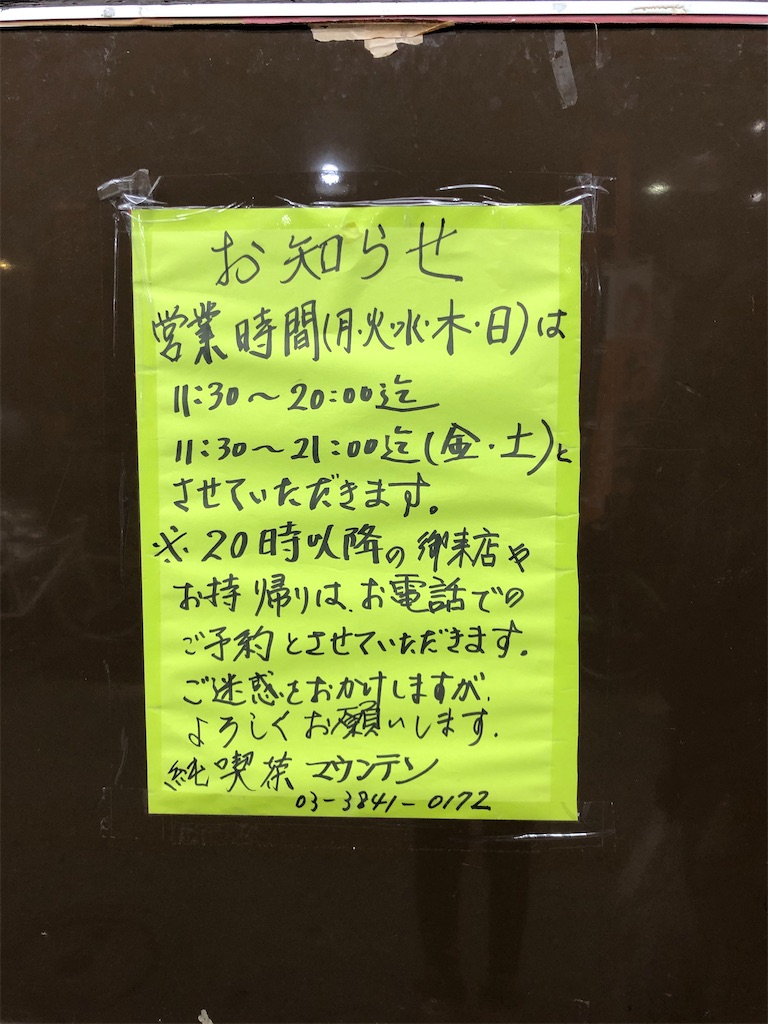 お知らせ
営業時間(月・火・水・木・日)は
11:30〜20:00迄
11:30〜21:00迄(金・土)と
させていただきます。
※20時以降の御来店や
お持帰りは、お電話での
ご予約とさせていただきます。
ご迷惑をおかけしますが、
よろしくお願いします。
純喫茶 マウンテン
03-3841-0172